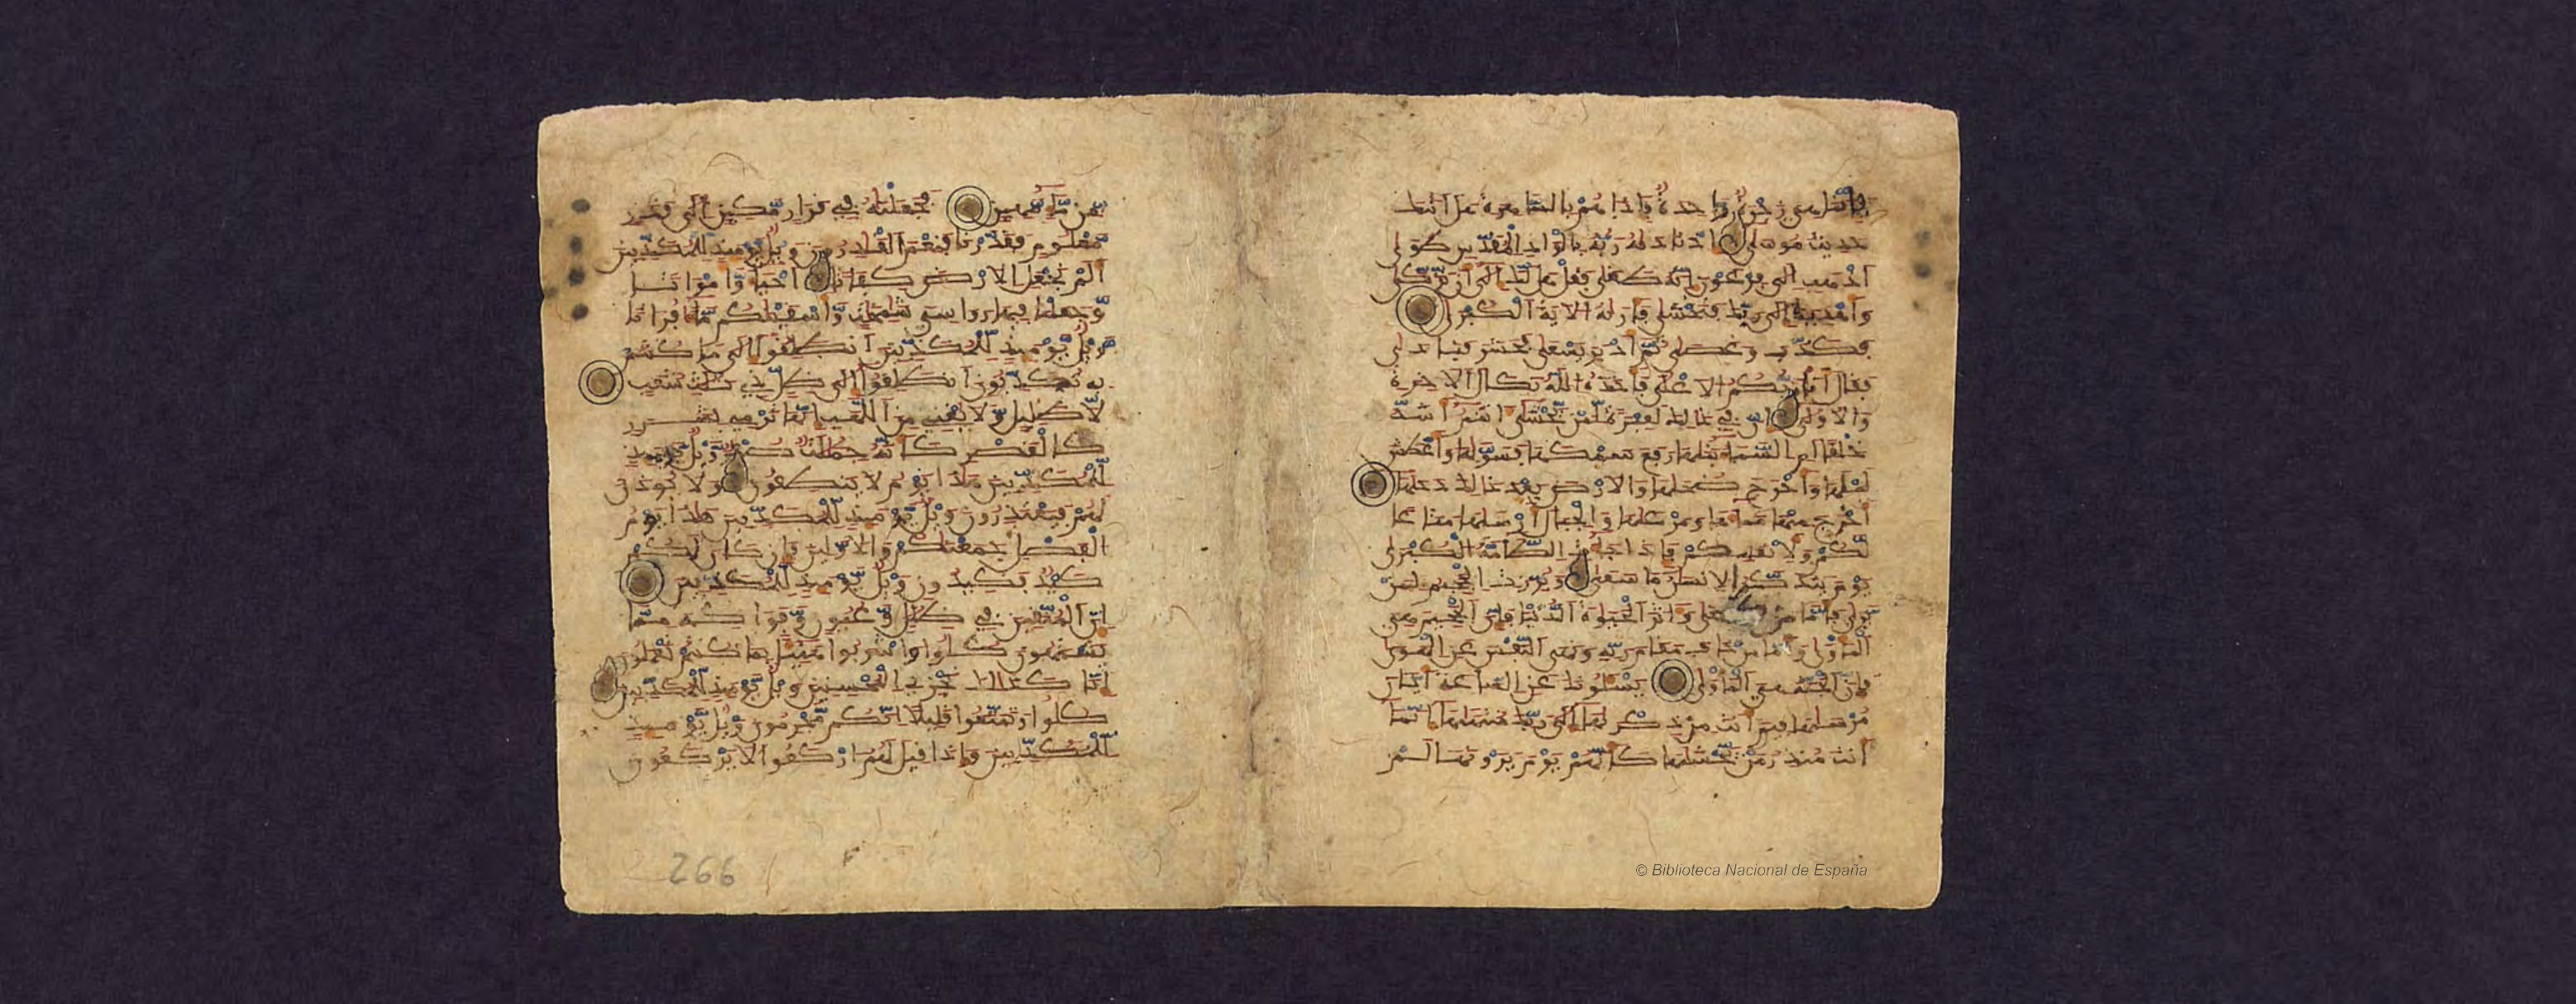 فإنما هي زجرة واحدة فإذا هم بالساهرة هل أتيك
حديث موسى إذ ناديه ربه بالواد المقدس طوى
اذهب إلى فرعون إنه طغى فقل هل لك إلى أن تزكى
وأهديك إلى ربك فتخشى فأريه الآية الكبرى
فكذب وعصى ثم أدبر يسعى فحشر فنادى
فقال أنا ربكم الأعلى فأخذه الله نكال الآخرة
والأولى إن في ذلك لعبرة لمن يخشى أنتم أشد
خلقا أم السماء بنيها رفع سمكها فسويها وأغطش
ليلها وأخرج ضحيها والأرض بعد ذلك دحيها
أخرج منها ماءها ومرعيها والجبال أرسيها متاعا
لكم ولأنعامكم فإذا جاءت الطامة الكبرى
يوم يتذكر الإنسان ما سعى وبرزت الجحيم لمن
يرى فأما من طغى وآثر الحيوة الدنيا فإن الجحيم هي
المأوى وأما من خاف مقام ربه ونهى النفس عن الهوى
فإن الجنة هي المأوى يسئلونك عن الساعة أيان
مرسيها فيم أنت من ذكريها إلى ربك منتهيها إنما
أنت منذر من يخشيها كأنهم يوم يرونها لم
من ماء مهين فجعلناه في قرار مكين إلى قدر
معلوم فقدرنا فنعم القادرون ويل يومئذ للمكذبين
ألم نجعل الأرض كفاتا أحياء وأمواتا
وجعلنا فيها رواسي شامخات وأسقيناكم ماء فراتا
ويل يومئذ للمكذبين انطلقوا إلى ما كنتم
به تكذبون انطلقوا إلى ظل ذي ثلاث شعب
لا ظليل ولا يغني من اللهب إنها ترمي بشرر
كالقصر كأنه جمالات صفر ويل يومئذ
للمكذبين هذا يوم لا ينطقون ولا يؤذن
لهم فيعتذرون ويل يومئذ للمكذبين هذا يوم
الفصل جمعناكم والأولين فإن كان لكم
كيد فكيدون ويل يومئذ للمكذبين
إن المتقين في ظلال وعيون وفواكه مما
يشتهون كلوا واشربوا هنيئا بما كنتم تعملون
إنا كذلك نجزي المحسنين ويل يومئذ للمكذبين
كلوا وتمتعوا قليلا إنكم مجرمون ويل يومئذ
للمكذبين وإذا قيل لهم اركعوا لا يركعون
266
© Biblioteca Nacional de España